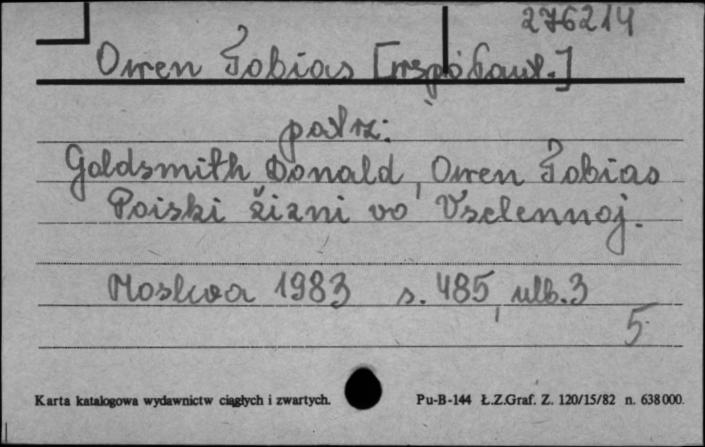 276214
Owen Tobias [współaut.]
patrz:
Goldsmith Donald, Owen Tobias
Poiski žizni vo Vselennoj.
Moskva 1983 s. 485, nlb. 3
5
Karta katalogowa wydawnictw ciągłych i zwartych. Pu-B-144 Ł.Z.Graf. Z. 120/15/82 n. 638000.